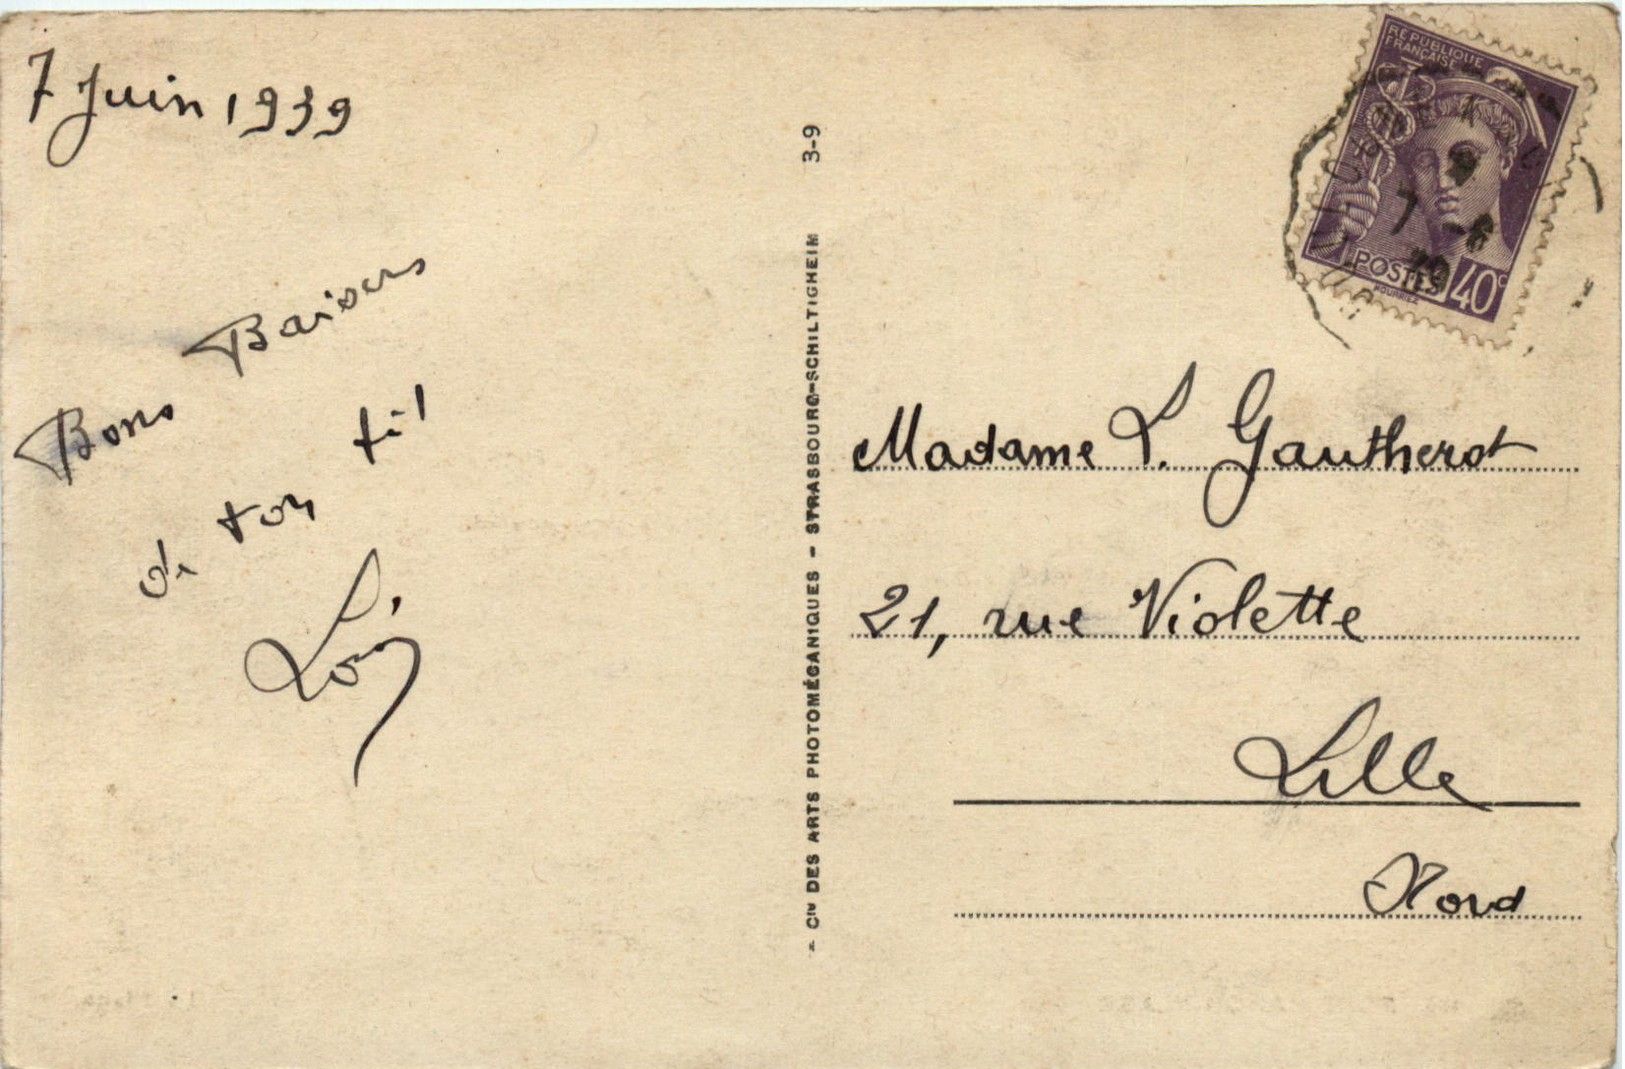 7 Juin 1939
Bons Baisers
de ton
Madame L. Gautherot
21, rue Violette
Lille
Nord
- Cie DES ARTS PHOTOMÉCANIQUES - STRASBOURG-SCHILTIGHEIM 3-9
RÉPUBLIQUE
FRANÇAISE
7 -6
39
POSTES 40c
HOURRIEZ